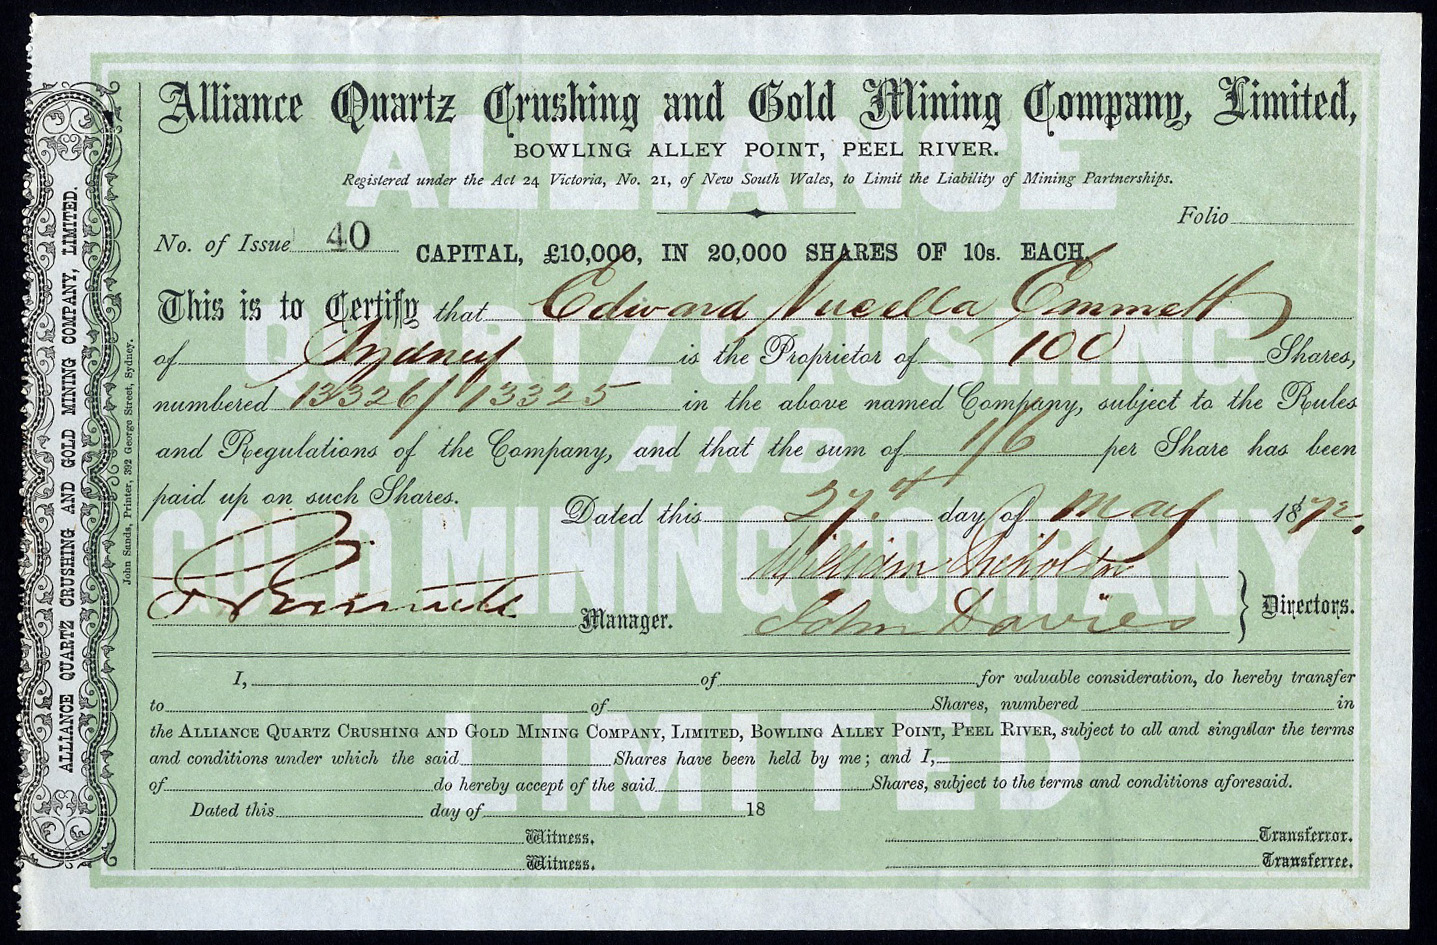 Alliance Quartz Crushing and Gold Mining Company, Limited,
BOWLING ALLEY POINT, PEEL RIVER.
Registered under the Act 24 Victoria, No. 21, of New South Wales, to Limit the Liability of Mining Partnerships.
Folio
No. of Issue 40 CAPITAL, £10,000, IN 20,000 SHARES OF 10s. EACH.
This is to Certify that Edward Emmett
of Sydney is the Proprietor of 100 Shares,
numbered 13326/13325 in the above named Company, subject to the Rules
and Regulations of the Company, and that the sum of 1/6 per Share has been
paid up on such Shares.
Dated this 27th day of May 1872.
William
Manager. John Davies Directors.
I, of for valuable consideration, do hereby transfer
to of Shares, numbered in
the ALLIANCE QUARTZ CRUSHING AND GOLD MINING COMPANY, LIMITED, BOWLING ALLEY POINT, PEEL RIVER, subject to all and singular the terms
and conditions under which the said Shares have been held by me; and I,
of do hereby accept of the said Shares, subject to the terms and conditions aforesaid.
Dated this day of 18
Witness. Transferror.
Witness. Transferree.
ALLIANCE QUARTZ CRUSHING AND GOLD MINING COMPANY, LIMITED.
John Sands, Printer, 392 George Street, Sydney.
ALLIANCE
QUARTZ CRUSHING
AND
GOLD MINING COMPANY
LIMITED